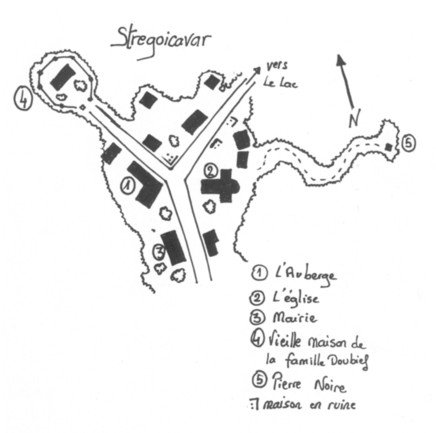 Stregoicavar
vers
Le Lac
N
4
5
1
2
3
1 L'Auberge
2 L'église
3 Mairie
4 Vieille maison de
la famille Doubief
5 Pierre Noire
maison en ruine